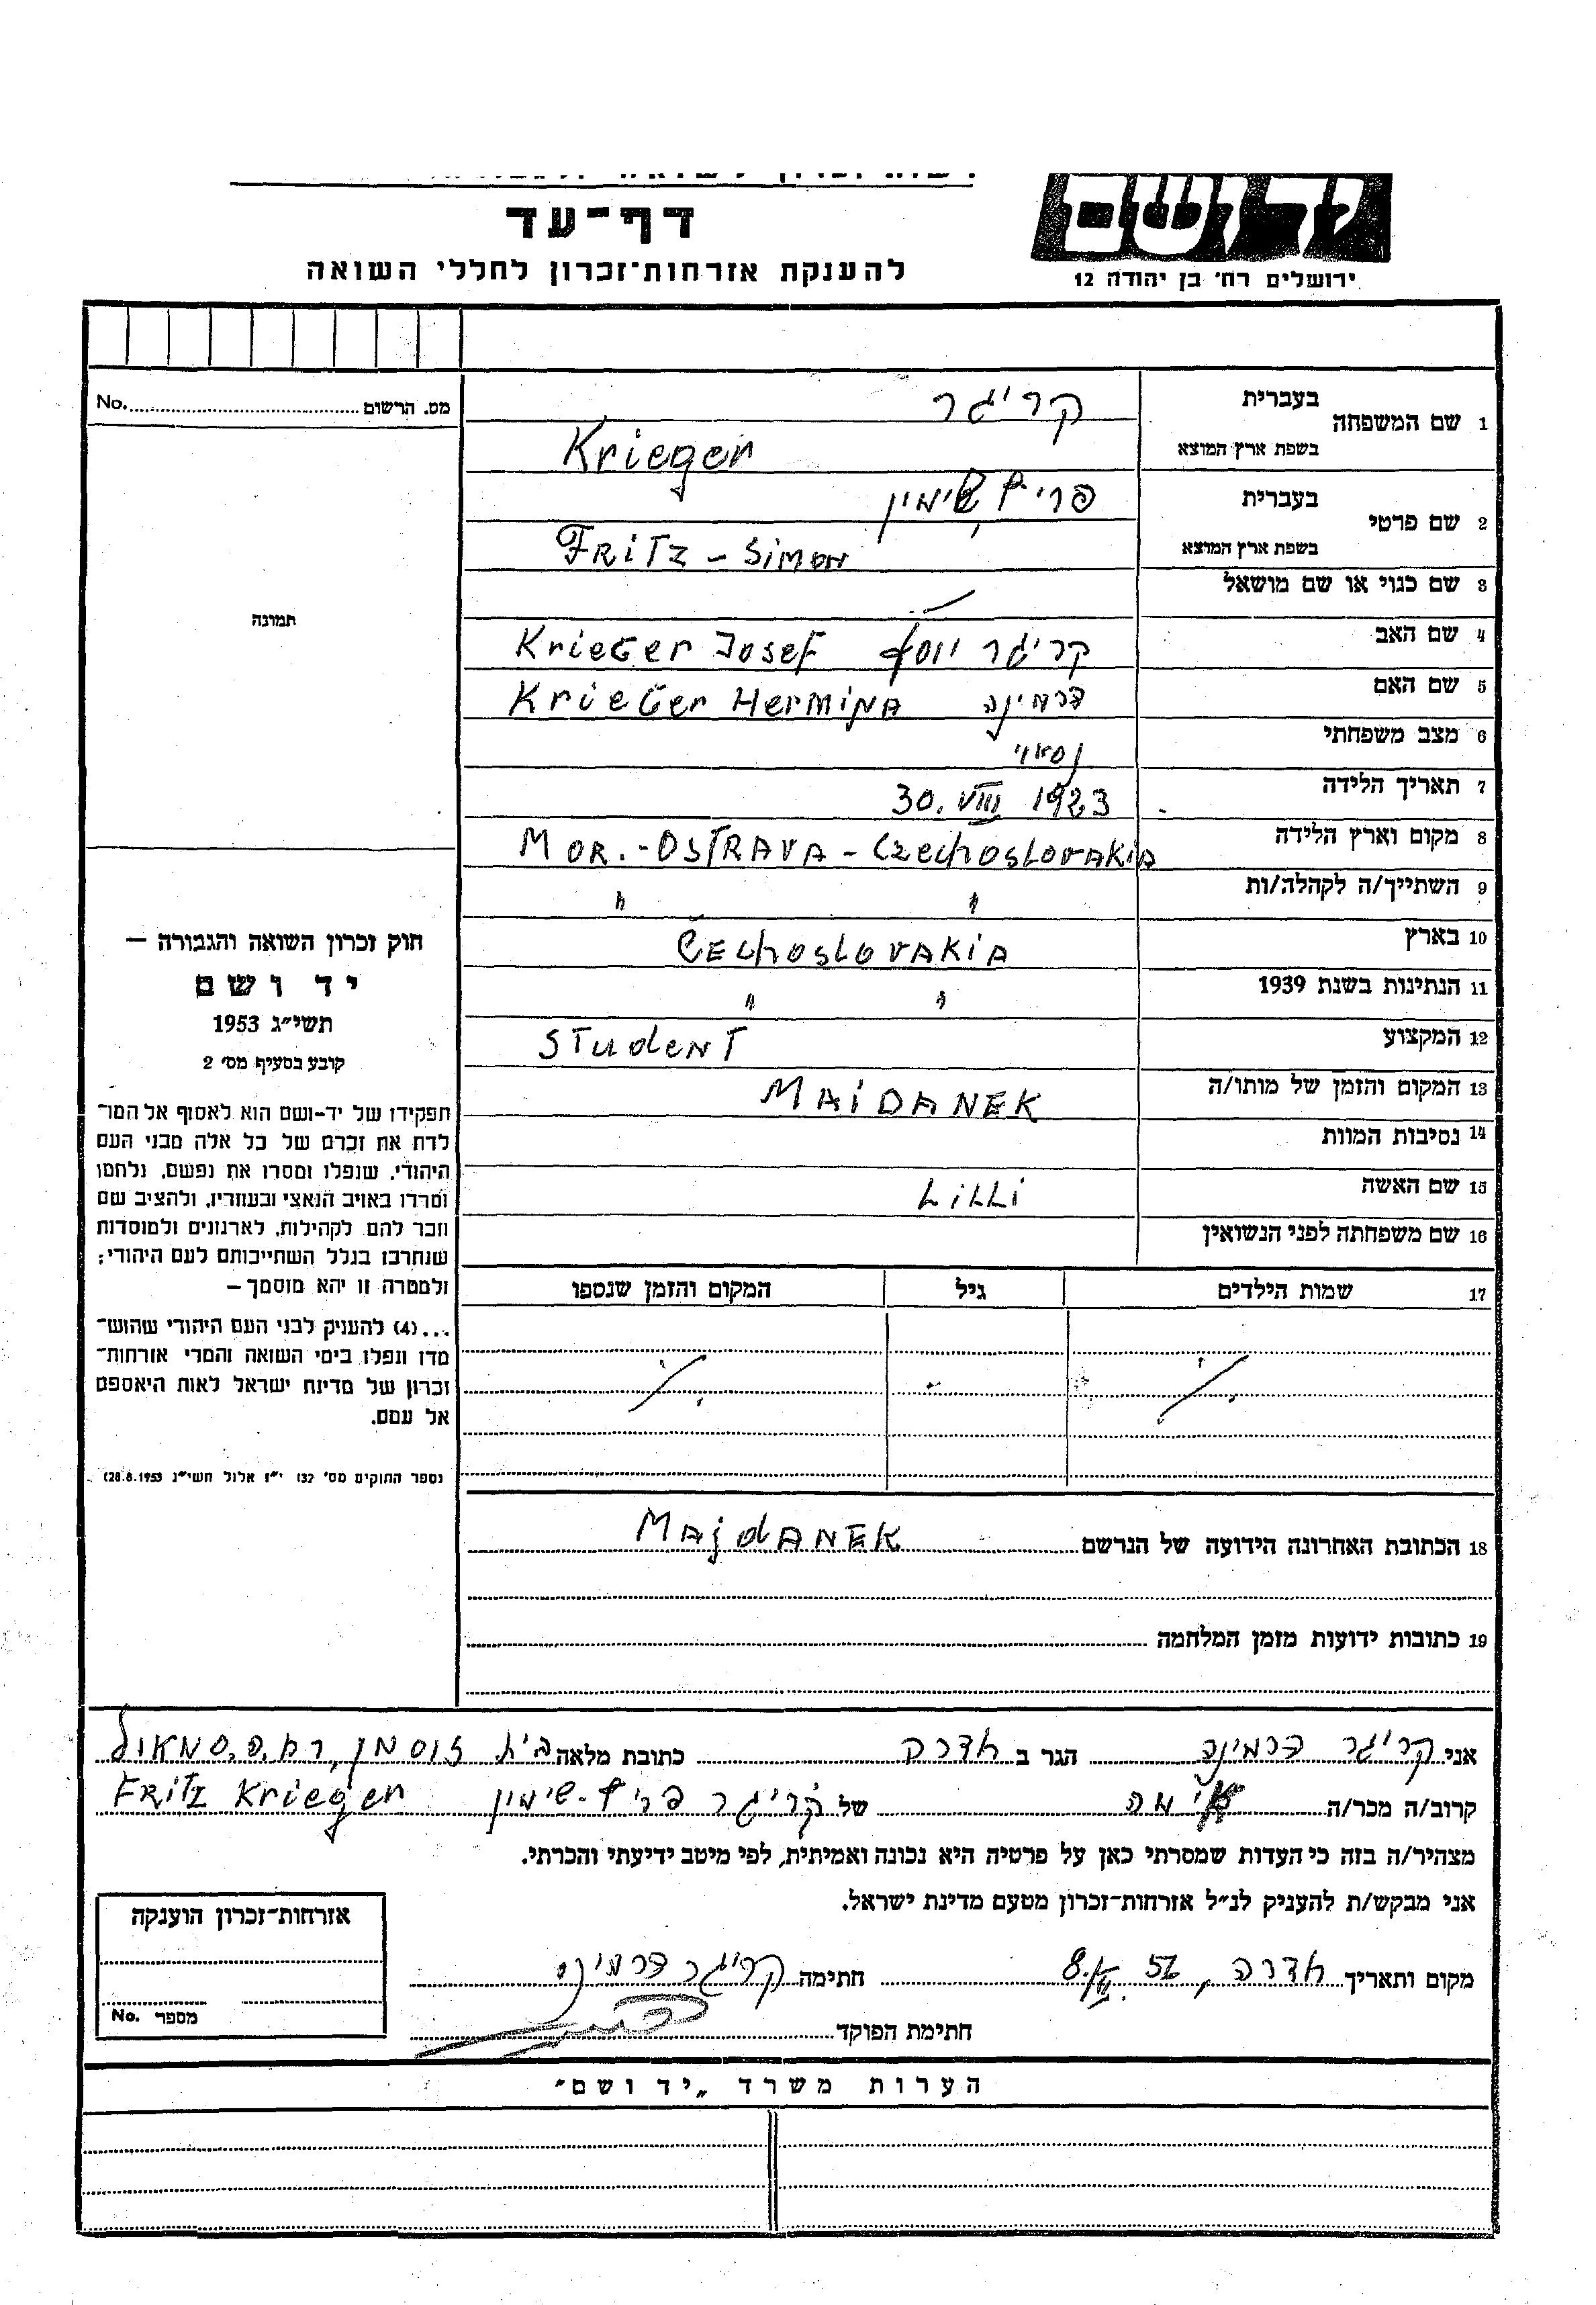 יד ושם
דף־עד
ירושלים רח' בן יהודה 12
להענקת אזרחות־זכרון לחללי השואה
1 שם המשפחה בעברית קריגר
בשפת ארץ המוצא Krieger
2 שם פרטי בעברית פריץ שימון
בשפת ארץ המוצא FRiTZ - Simon
3 שם כנוי או שם מושאל
4 שם האב קריגר יוסף Krieger Josef
5 שם האם הרמינה Krieger HermiNA
6 מצב משפחתי נשוי
7 תאריך הלידה 30. VIII 1923
8 מקום וארץ הלידה MOR.-OSTRAVA - CzechosLovAKiA
9 השתייך/ה לקהלה/ות " "
10 בארץ ČEchosLovAKiA
11 הנתינות בשנת 1939 " "
12 המקצוע STudeNT
13 המקום והזמן של מותו/ה MAiDANEK
14 נסיבות המוות
15 שם האשה LiLLi
16 שם משפחתה לפני הנשואין
17 שמות הילדים גיל המקום והזמן שנספו
18 הכתובת האחרונה הידועה של הנרשם MAjdANEK
19 כתובות ידועות מזמן המלחמה
מס. הרשום No.
תמונה
חוק זכרון השואה והגבורה —
יד ושם
תשי״ג 1953
קובע בסעיף מס' 2
תפקידו של יד-ושם הוא לאסוף אל המו־
לדת את זכרם של כל אלה מבני העם
היהודי, שנפלו ומסרו את נפשם, נלחמו
ומרדו באויב הנאצי ובעוזריו, ולהציב שם
וזכר להם לקהילות, לארגונים ולמוסדות
שנחרבו בגלל השתייכותם לעם היהודי;
ולמטרה זו יהא מוסמך —
...(4) להעניק לבני העם היהודי שהוש־
מדו ונפלו בימי השואה והמרי אזרחות־
זכרון של מדינת ישראל לאות היאספם
אל עמם.
(ספר החוקים מס' 132 י״ז אלול תשי״ג 28.8.1953)
אני קריגר הרמינה הגר ב חדרה כתובת מלאה בית זוסמן, רח.
קרוב/ה מכר/ה אימה של קריגר פריץ-שימון FRiTz Krieger
מצהיר/ה בזה כי העדות שמסרתי כאן על פרטיה היא נכונה ואמיתית, לפי מיטב ידיעתי והכרתי.
אני מבקש/ת להעניק לנ״ל אזרחות־זכרון מטעם מדינת ישראל.
מקום ותאריך חדרה, חתימה קריגר הרמינה
חתימת הפוקד
אזרחות־זכרון הוענקה
מספר No.
הערות משרד „יד ושם״